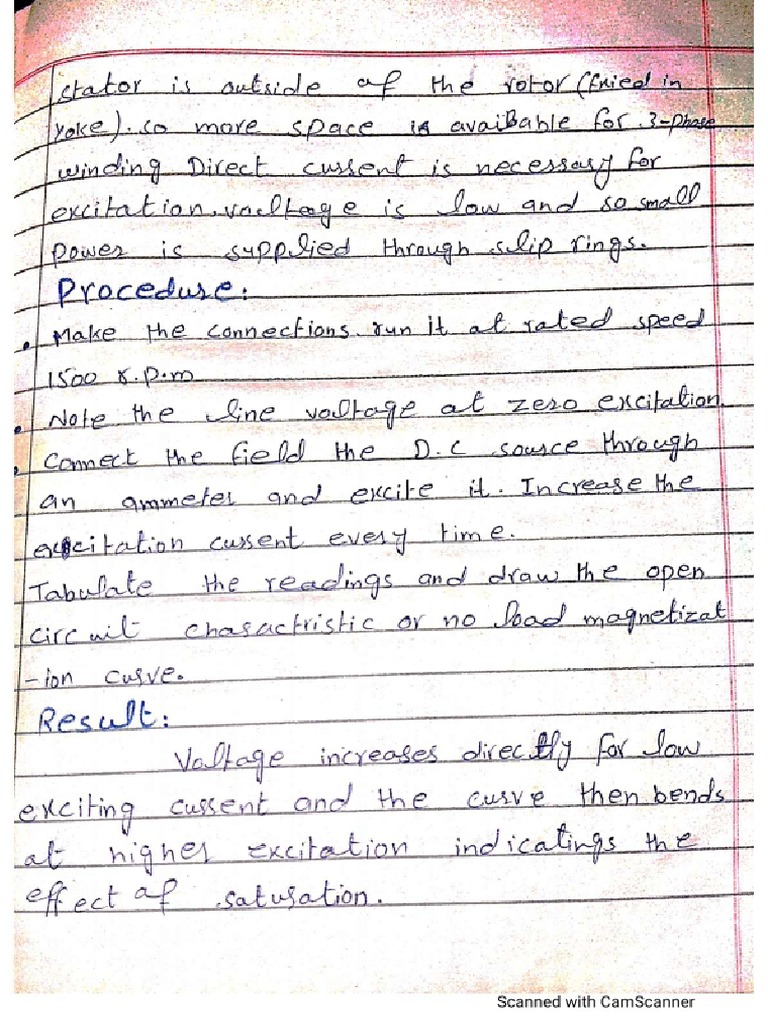 stator is outside of the rotor (fried in
yoke). so more space is availbable for 3-phase
winding Direct current is necessary for
excitation. voltage is low and so small
power is supplied through slip rings.
Procedure:
• Make the connections. run it at rated speed
1500 r.p.m
• Note the line voltage at zero excitation.
• Connect the field the D.C source through
an ammeter and excite it. Increase the
excitation current every time.
Tabulate the readings and draw the open
circuit charactristic or no load magnetizat
-ion curve.
Result:
Voltage increases directly for low
exciting current and the curve then bends
at higher excitation indicatings the
effect of saturation.
Scanned with CamScanner